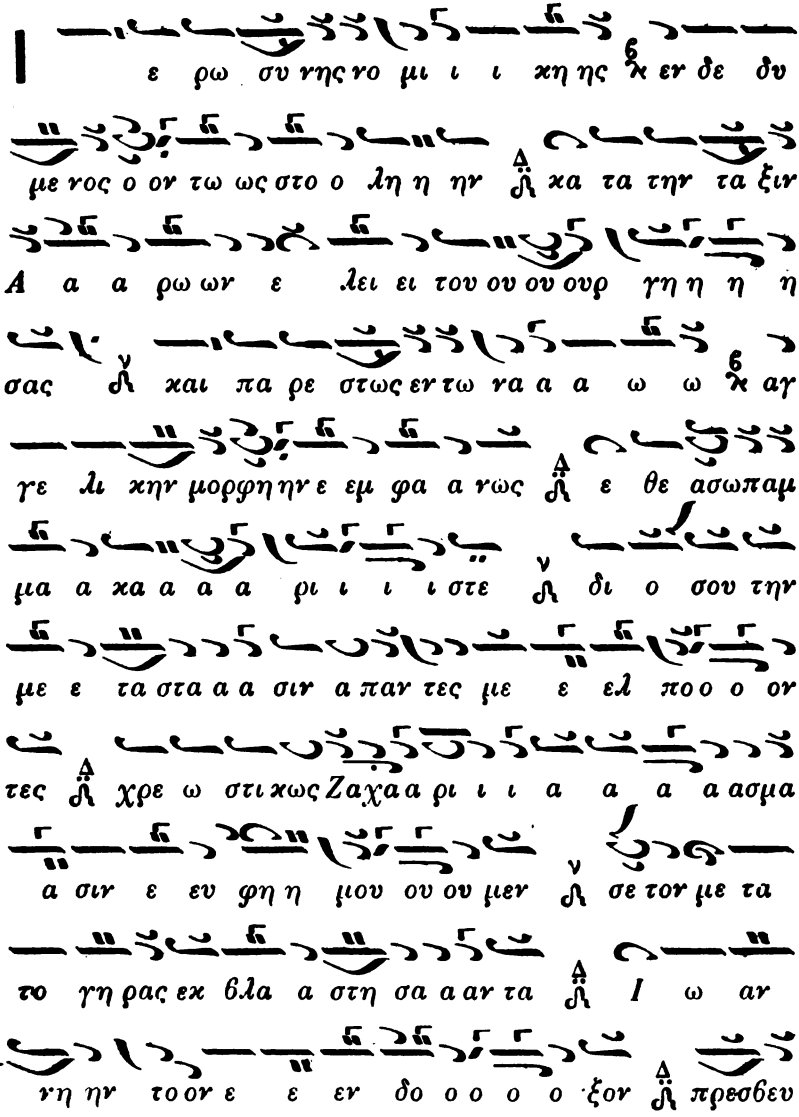 Ι ε ρω συ νης νο μι ι ι κη ης εν δε δυ
με νος ο ον τω ως στο ο λη η ην Δ κα τα την τα ξιν
Α α α ρω ων ε λει ει του ου ου ουρ γη η η η
σας ν και πα ρε στως εν τω να α α ω ω αγ
γε λι κην μορφη ην ε εμ φα α νως Δ ε θε ασω παμ
μα α κα α α α ρι ι ι ι στε ν δι ο σου την
με ε τα στα α α σιν α παν τες με ε ελ πο ο ο ον
τες Δ χρε ω στι κως Ζαχα α ρι ι ι α α α α ασμα
α σιν ε ευ φη η μου ου ου μεν ν σε τον με τα
το γη ρας εκ βλα α στη σα α αν τα Δ Ι ω αν
νη ην το ον ε ε εν δο ο ο ο ο ξον Δ πρεσβευ